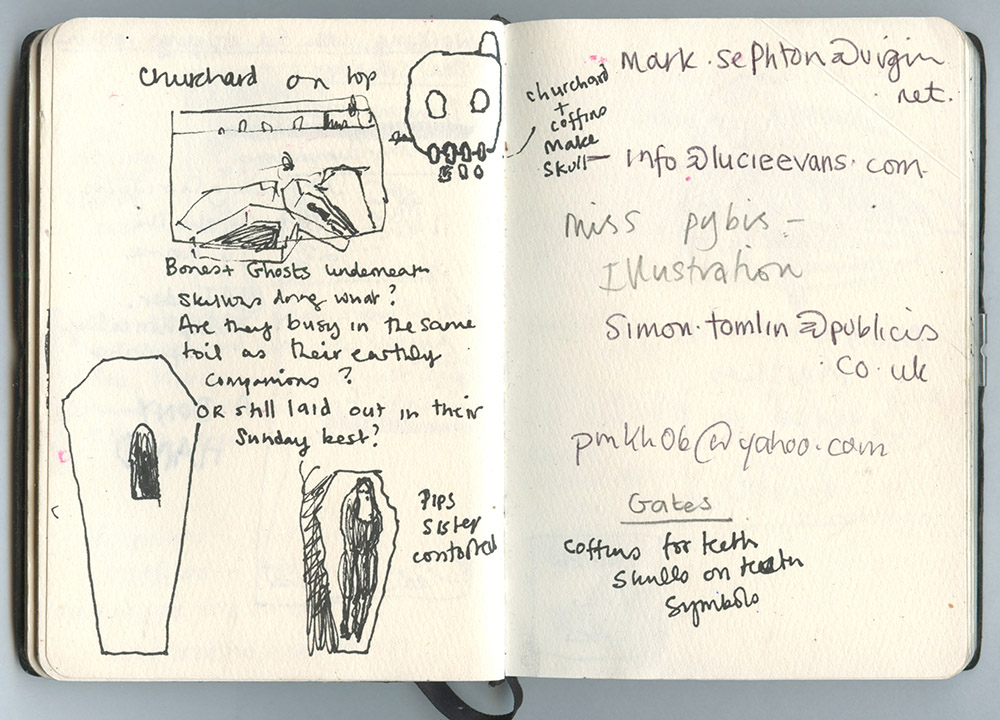 Churchard on top
churchard
+
coffins
make
skull
Bones + Ghosts underneath
doing what?
Are they busy in the same
toil as their earthly
companions?
OR still laid out in their
Sunday best?
Pips
sister
mark.sephton@virgin
net.
info@lucieevans.com
miss pybis -
Illustration
Simon.tomlin@publicis
.co.uk
pmkh06@yahoo.com
Gates
coffins for teeth
skulls on teeth
symbols